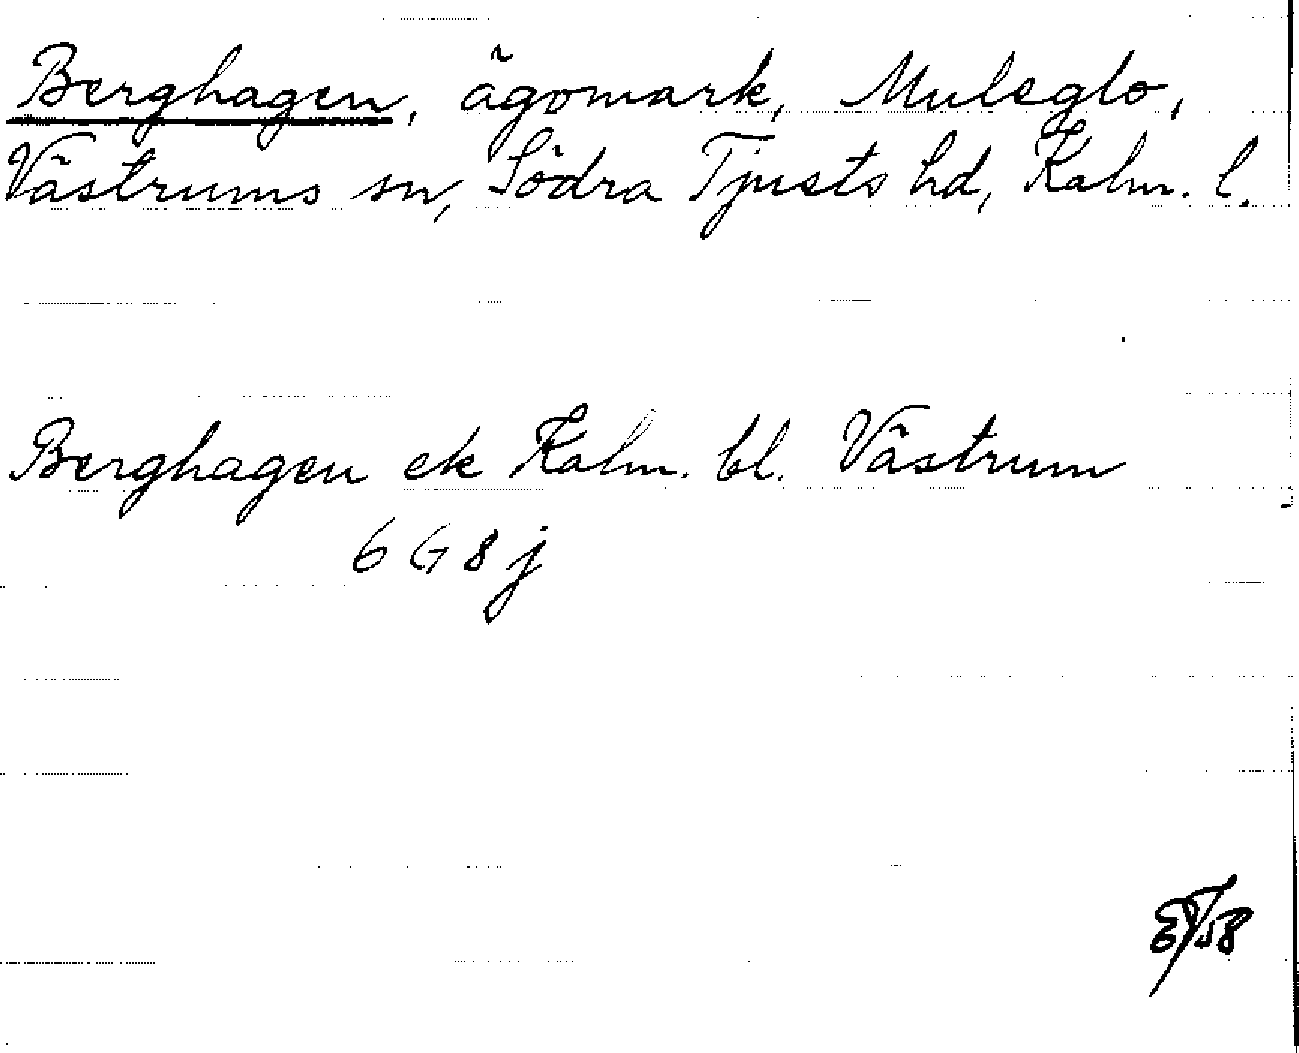 Berghagen, ägomark, Muleglo,
Västrums sn, Södra Tjusts hd, Kalm. l.
Berghagen ek Kalm. bl. Västrum
6 G 8 j